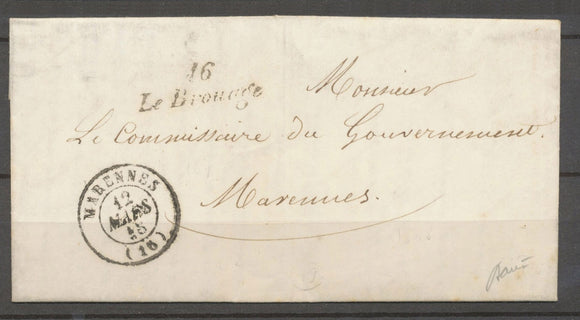 16
Le Brouage
Monsieur
Le Commissaire du Gouvernement.
Marennes.
MARENNES
12
MARS
48
(16)